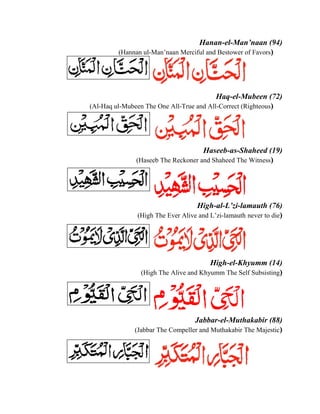 Hanan-el-Man’naan (94)
(Hannan ul-Man’naan Merciful and Bestower of Favors)
الْحَنَّانِ الْمَنَّانِ الْحَنَّانِ الْمَنَّانِ
Haq-el-Mubeen (72)
(Al-Haq ul-Mubeen The One All-True and All-Correct (Righteous)
الْحَقِّ الْمُبِيْنِ الْحَقِّ الْمُبِيْنِ
Haseeb-as-Shaheed (19)
(Haseeb The Reckoner and Shaheed The Witness)
الْحَسِيْبِ الشَّهِيْدِ الْحَسِيْبِ الشَّهِيْدِ
High-al-L’zi-lamauth (76)
(High The Ever Alive and L’zi-lamauth never to die)
الْحَيِّ الَّذِيْ لَا يَمُوْتُ الْحَيِّ الَّذِيْ لَا يَمُوْتُ
High-el-Khyumm (14)
(High The Alive and Khyumm The Self Subsisting)
الْحَيِّ الْقَيُّوْمِ الْحَيِّ الْقَيُّوْمِ
Jabbar-el-Muthakabir (88)
(Jabbar The Compeller and Muthakabir The Majestic)
الْجَبَّارِ الْمُتَكَبِّرِ الْجَبَّارِ الْمُتَكَبِّرِ